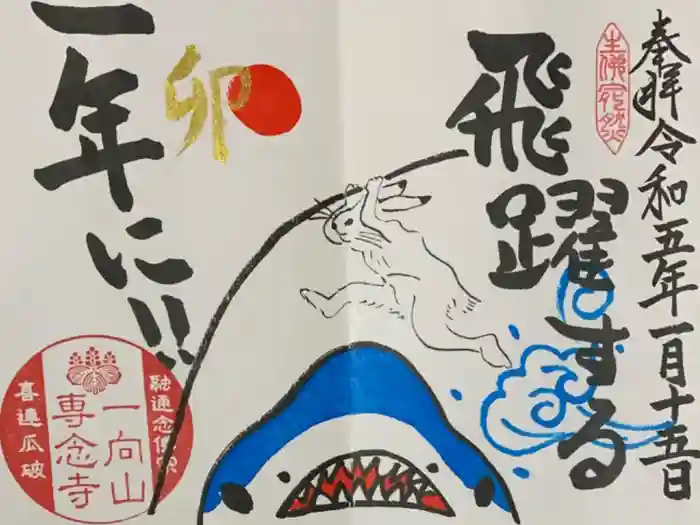 奉拝令和五年一月十五日
生佛宛然
飛躍する
一年に!!
卯
融通念佛宗
一向山
専念寺
喜連瓜破